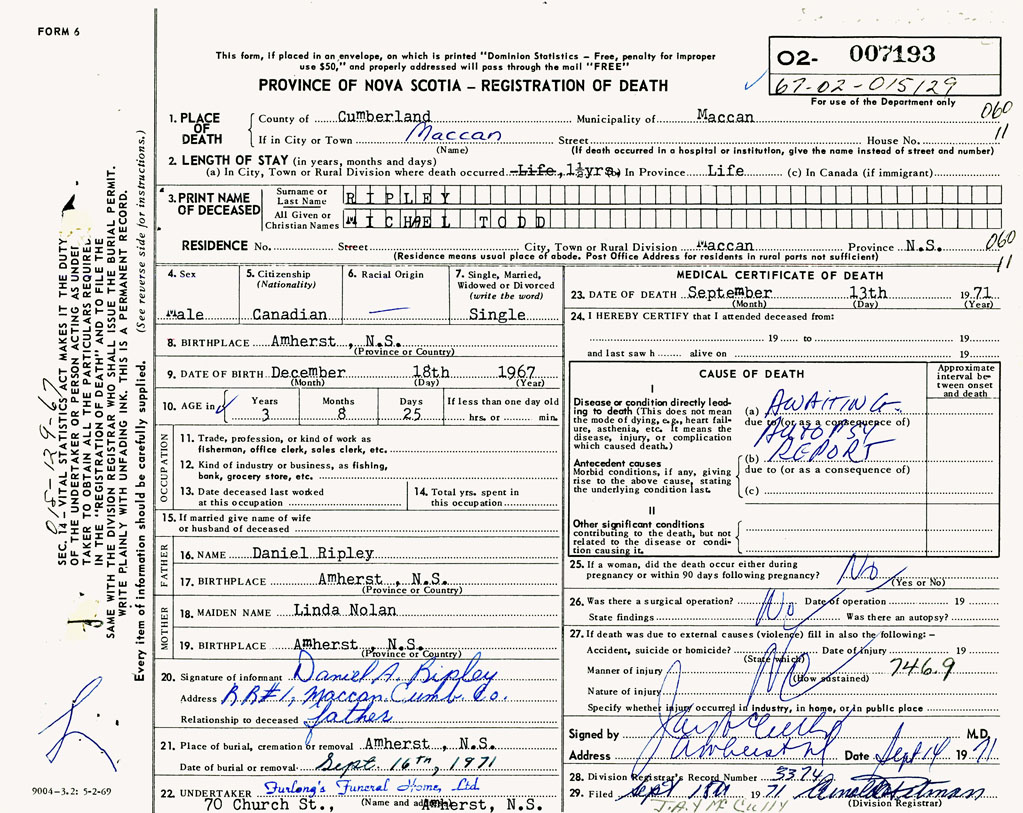 FORM 6
This form, if placed in an envelope, on which is printed "Dominion Statistics – Free, penalty for improper
use $50," and properly addressed will pass through the mail "FREE"
PROVINCE OF NOVA SCOTIA – REGISTRATION OF DEATH
02- 007193
67-02-015129
For use of the Department only
060
11
1. PLACE OF DEATH
County of Cumberland Municipality of Maccan
If in City or Town Maccan Street House No.
(Name) (If death occurred in a hospital or institution, give the name instead of street and number)
2. LENGTH OF STAY (in years, months and days)
(a) In City, Town or Rural Division where death occurred Life, 1½yrs. (b) In Province Life (c) In Canada (if immigrant)
3. PRINT NAME OF DECEASED
Surname or Last Name RIPLEY
All Given or Christian Names MICHAEL TODD
RESIDENCE No. Street City, Town or Rural Division Maccan Province N.S.
060
11
(Residence means usual place of abode. Post Office Address for residents in rural parts not sufficient)
4. Sex
Male
5. Citizenship
(Nationality)
Canadian
6. Racial Origin
—
7. Single, Married,
Widowed or Divorced
(write the word)
Single
8. BIRTHPLACE Amherst, N.S.
(Province or Country)
9. DATE OF BIRTH December 18th 1967
(Month) (Day) (Year)
10. AGE in
Years Months Days If less than one day
3 8 25 hrs. or min.
OCCUPATION
11. Trade, profession, or kind of work as
fisherman, office clerk, sales clerk, etc.
12. Kind of industry or business, as fishing,
bank, grocery store, etc.
13. Date deceased last worked
at this occupation
14. Total yrs. spent in
this occupation
15. If married give name of wife
or husband of deceased
FATHER
16. NAME Daniel Ripley
17. BIRTHPLACE Amherst, N.S.
(Province or Country)
MOTHER
18. MAIDEN NAME Linda Nolan
19. BIRTHPLACE Amherst, N.S.
(Province or Country)
20. Signature of informant Daniel A. Ripley
Address RR#1, Maccan. Cumb. Co.
Relationship to deceased father
21. Place of burial, cremation or removal Amherst, N.S.
Date of burial or removal Sept. 16th, 1971
22. UNDERTAKER Furlong's Funeral Home, Ltd
(Name and address)
70 Church St., Amherst, N.S.
MEDICAL CERTIFICATE OF DEATH
23. DATE OF DEATH September 13th 1971
(Month) (Day) (Year)
24. I HEREBY CERTIFY that I attended deceased from:
19 to 19
and last saw h alive on 19
CAUSE OF DEATH
Approximate interval between onset and death
I
Disease or condition directly leading to death (This does not mean the mode of dying, e.g., heart failure, asthenia, etc. It means the disease, injury, or complication which caused death.)
(a) AWAITING
due to (or as a consequence of)
AUTOPSY
(b) REPORT
due to (or as a consequence of)
(c)
Antecedent causes
Morbid conditions, if any, giving
rise to the above cause, stating
the underlying condition last.
II
Other significant conditions
contributing to the death, but not
related to the disease or condition causing it.
25. If a woman, did the death occur either during
pregnancy or within 90 days following pregnancy? No
(Yes or No)
26. Was there a surgical operation? No Date of operation 19
State findings Was there an autopsy?
27. If death was due to external causes (violence) fill in also the following: –
Accident, suicide or homicide? Date of injury 19
(State which)
No
Manner of injury 746.9
(How sustained)
Nature of injury
Specify whether injury occurred in industry, in home, or in public place
Signed by M.D.
Address Amherst NS Date Sept 14 1971
28. Division Registrar's Record Number 3374
29. Filed Sept 18th 1971
(Division Registrar)
J.A.Y McCully
SEC. 14 – VITAL STATISTICS ACT MAKES IT THE DUTY
OF THE UNDERTAKER OR PERSON ACTING AS UNDER
TAKER TO OBTAIN ALL THE PARTICULARS REQUIRED
IN THE "REGISTRATION OF DEATH" AND TO FILE THE
SAME WITH THE DIVISION REGISTRAR WHO SHALL ISSUE THE BURIAL PERMIT.
WRITE PLAINLY WITH UNFADING INK. THIS IS A PERMANENT RECORD.
Every item of information should be carefully supplied. (See reverse side for instructions.)
015-129-67
9004-3.2: 5-2-69